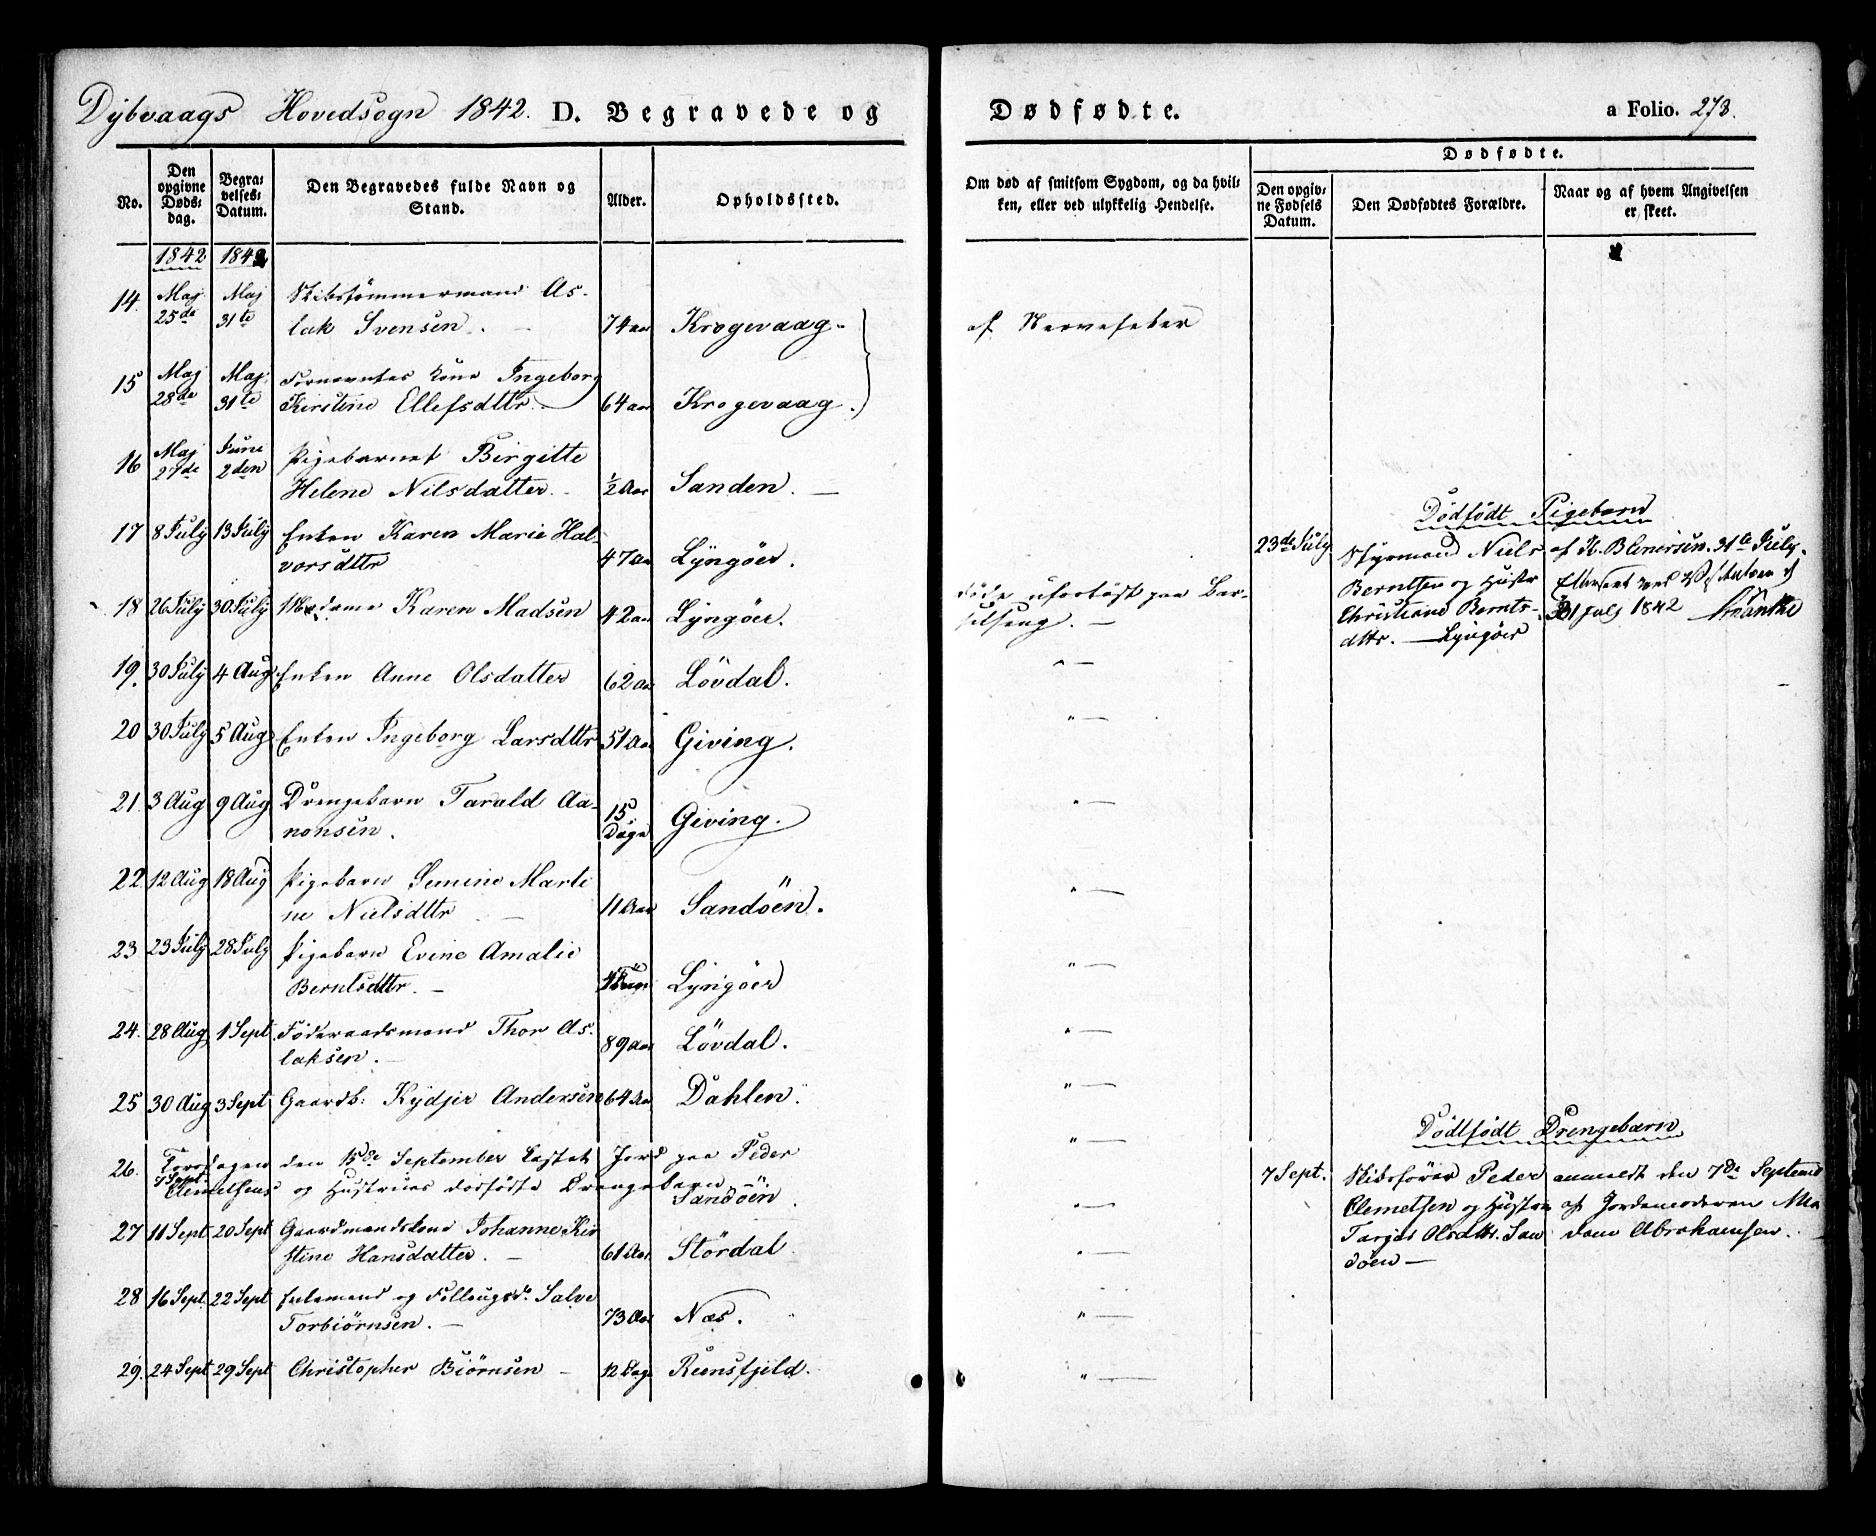 Dybvaags Hovedsogn 1842. D. Begravede og Dødfødte. a Folio. 273.
No.
Den opgivne Dødsdag.
Begravelses-Datum.
Den Begravedes fulde Navn og Stand.
Alder.
Opholdssted.
Om død af smitsom Sygdom, og da hvilken, eller ved ulykkelig Hendelse.
Dødfødte.
Den opgivne Fødsels Datum.
Den Dødfødtes Forældre.
Naar og af hvem Angivelsen er skeet.
1842 1842
14. Maj 25de Maj 31te Skibstömmermand As-
lak Svensen. 74 aar Krogevaag. af Nervefeber
15 Maj 28de Maj 31te Fornevntes kone Ingeborg
Kirstine Ellefsdttr. 64 aar Krogevaag.
16 Maj 27de Juni 2den Pigebarnet Birgitte
Helene Nilsdatter. 1/2 Aar Sanden.
17 8 July 13 July Enken Karen Marie Hal-
vorsdttr 47 Aar Lyngöer.
18 26 July 30 July Madame Karen Madsen 42 aar Lyngöer. döde uforlöst paa Bar-
selseng.
Dödfödt Pigebarn
23de July Styrmand Niels
Berntsen og Hustr
Christiane Bernts-
dttr. Lyngöer
af H. 31te July.
31 july 1842
19. 30 July 4 Aug Enken Anne Olsdatter 62 Aar Lövdal. " —
20 30 July 5 Aug Enken Ingeborg Larsdttr 51 Aar Giving. " —
21. 3 Aug 9 Aug Drengebarn Tarald Aa-
nonsen. 15 Dage Giving. " —
22. 12 Aug 18 Aug Pigebarn Semine Marti
ne Nielsdttr 11 Aar Sandöen. " —
23 23 July 28 July Pigebarn Evine Amalie
Berntsdttr. Lyngöer " —
24. 28 Aug 1 Sept Föderaadsmand Thor As-
laksen. 89 Aar Lövdal. " —
25 30 Aug 3 Sept Gaardb: Kydjer Andersen 64 Aar Dahlen. " —
26. Torsdagen den 15de September kastet Jord paa Peder " —
7 Sept. Clemetsens og Hustrues dödfödte Drengebarn
Sandöen. " —
Dödfödt Drengebarn
7 Sept. Skibsförer Peder
Clemetsen og Hustru
Targjer Olsdttr. San
döen —
anmeldt den 7de Septemb
af Jordemoderen Ma
dam Abrahamsen.
27 11 Sept 20 Sept Gaardmandskone Johanne Kir
stine Hansdatter. 61 Aar Stördal " —
28 16 Sept 22 Sept Enkemand og Salve
Torbiörnsen. 73 Aar Næs. " —
29. 24 Sept 29 Sept Christopher Biörnsen 12 Dage Reensfjeld. " —